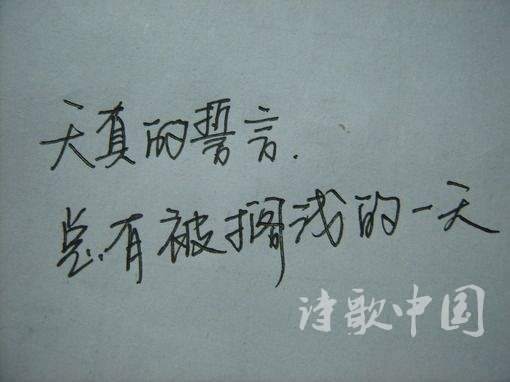 天真的誓言.
总有被搁浅的一天
诗歌中国